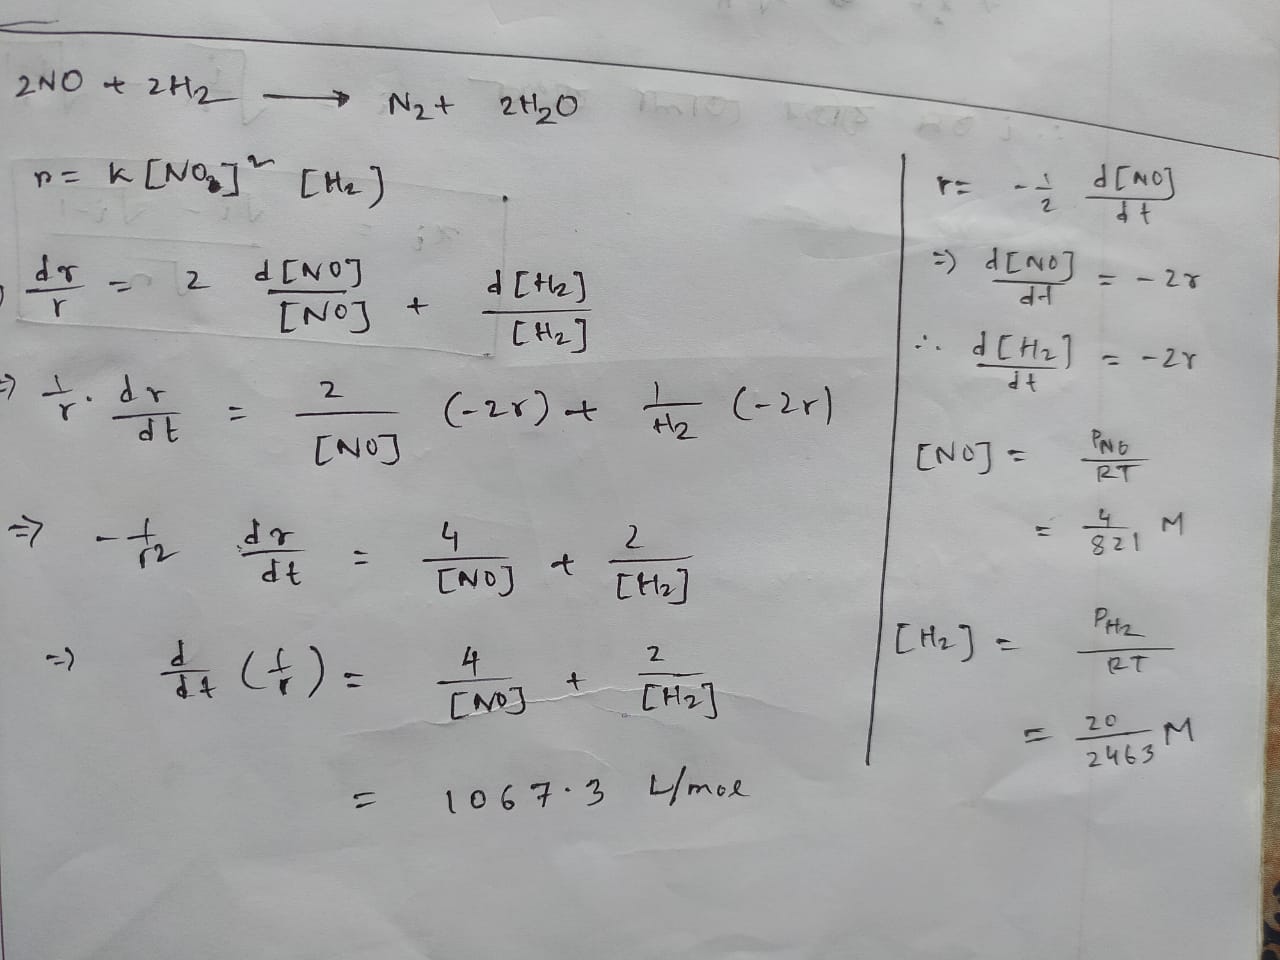 2NO + 2H2 ⟶ N2 + 2H2O
r = k [NO2]^2 [H2]
dr/r = 2 d[NO]/[NO] + d[H2]/[H2]
⇒ 1/r · dr/dt = 2/[NO] (-2r) + 1/H2 (-2r)
⇒ -1/r2 dr/dt = 4/[NO] + 2/[H2]
⇒ d/dt (1/r) = 4/[NO] + 2/[H2]
= 1067.3 L/mol
r = -1/2 d[NO]/dt
⇒ d[NO]/dt = -2r
∴ d[H2]/dt = -2r
[NO] = PNO/RT
= 4/821 M
[H2] = PH2/RT
= 20/2463 M